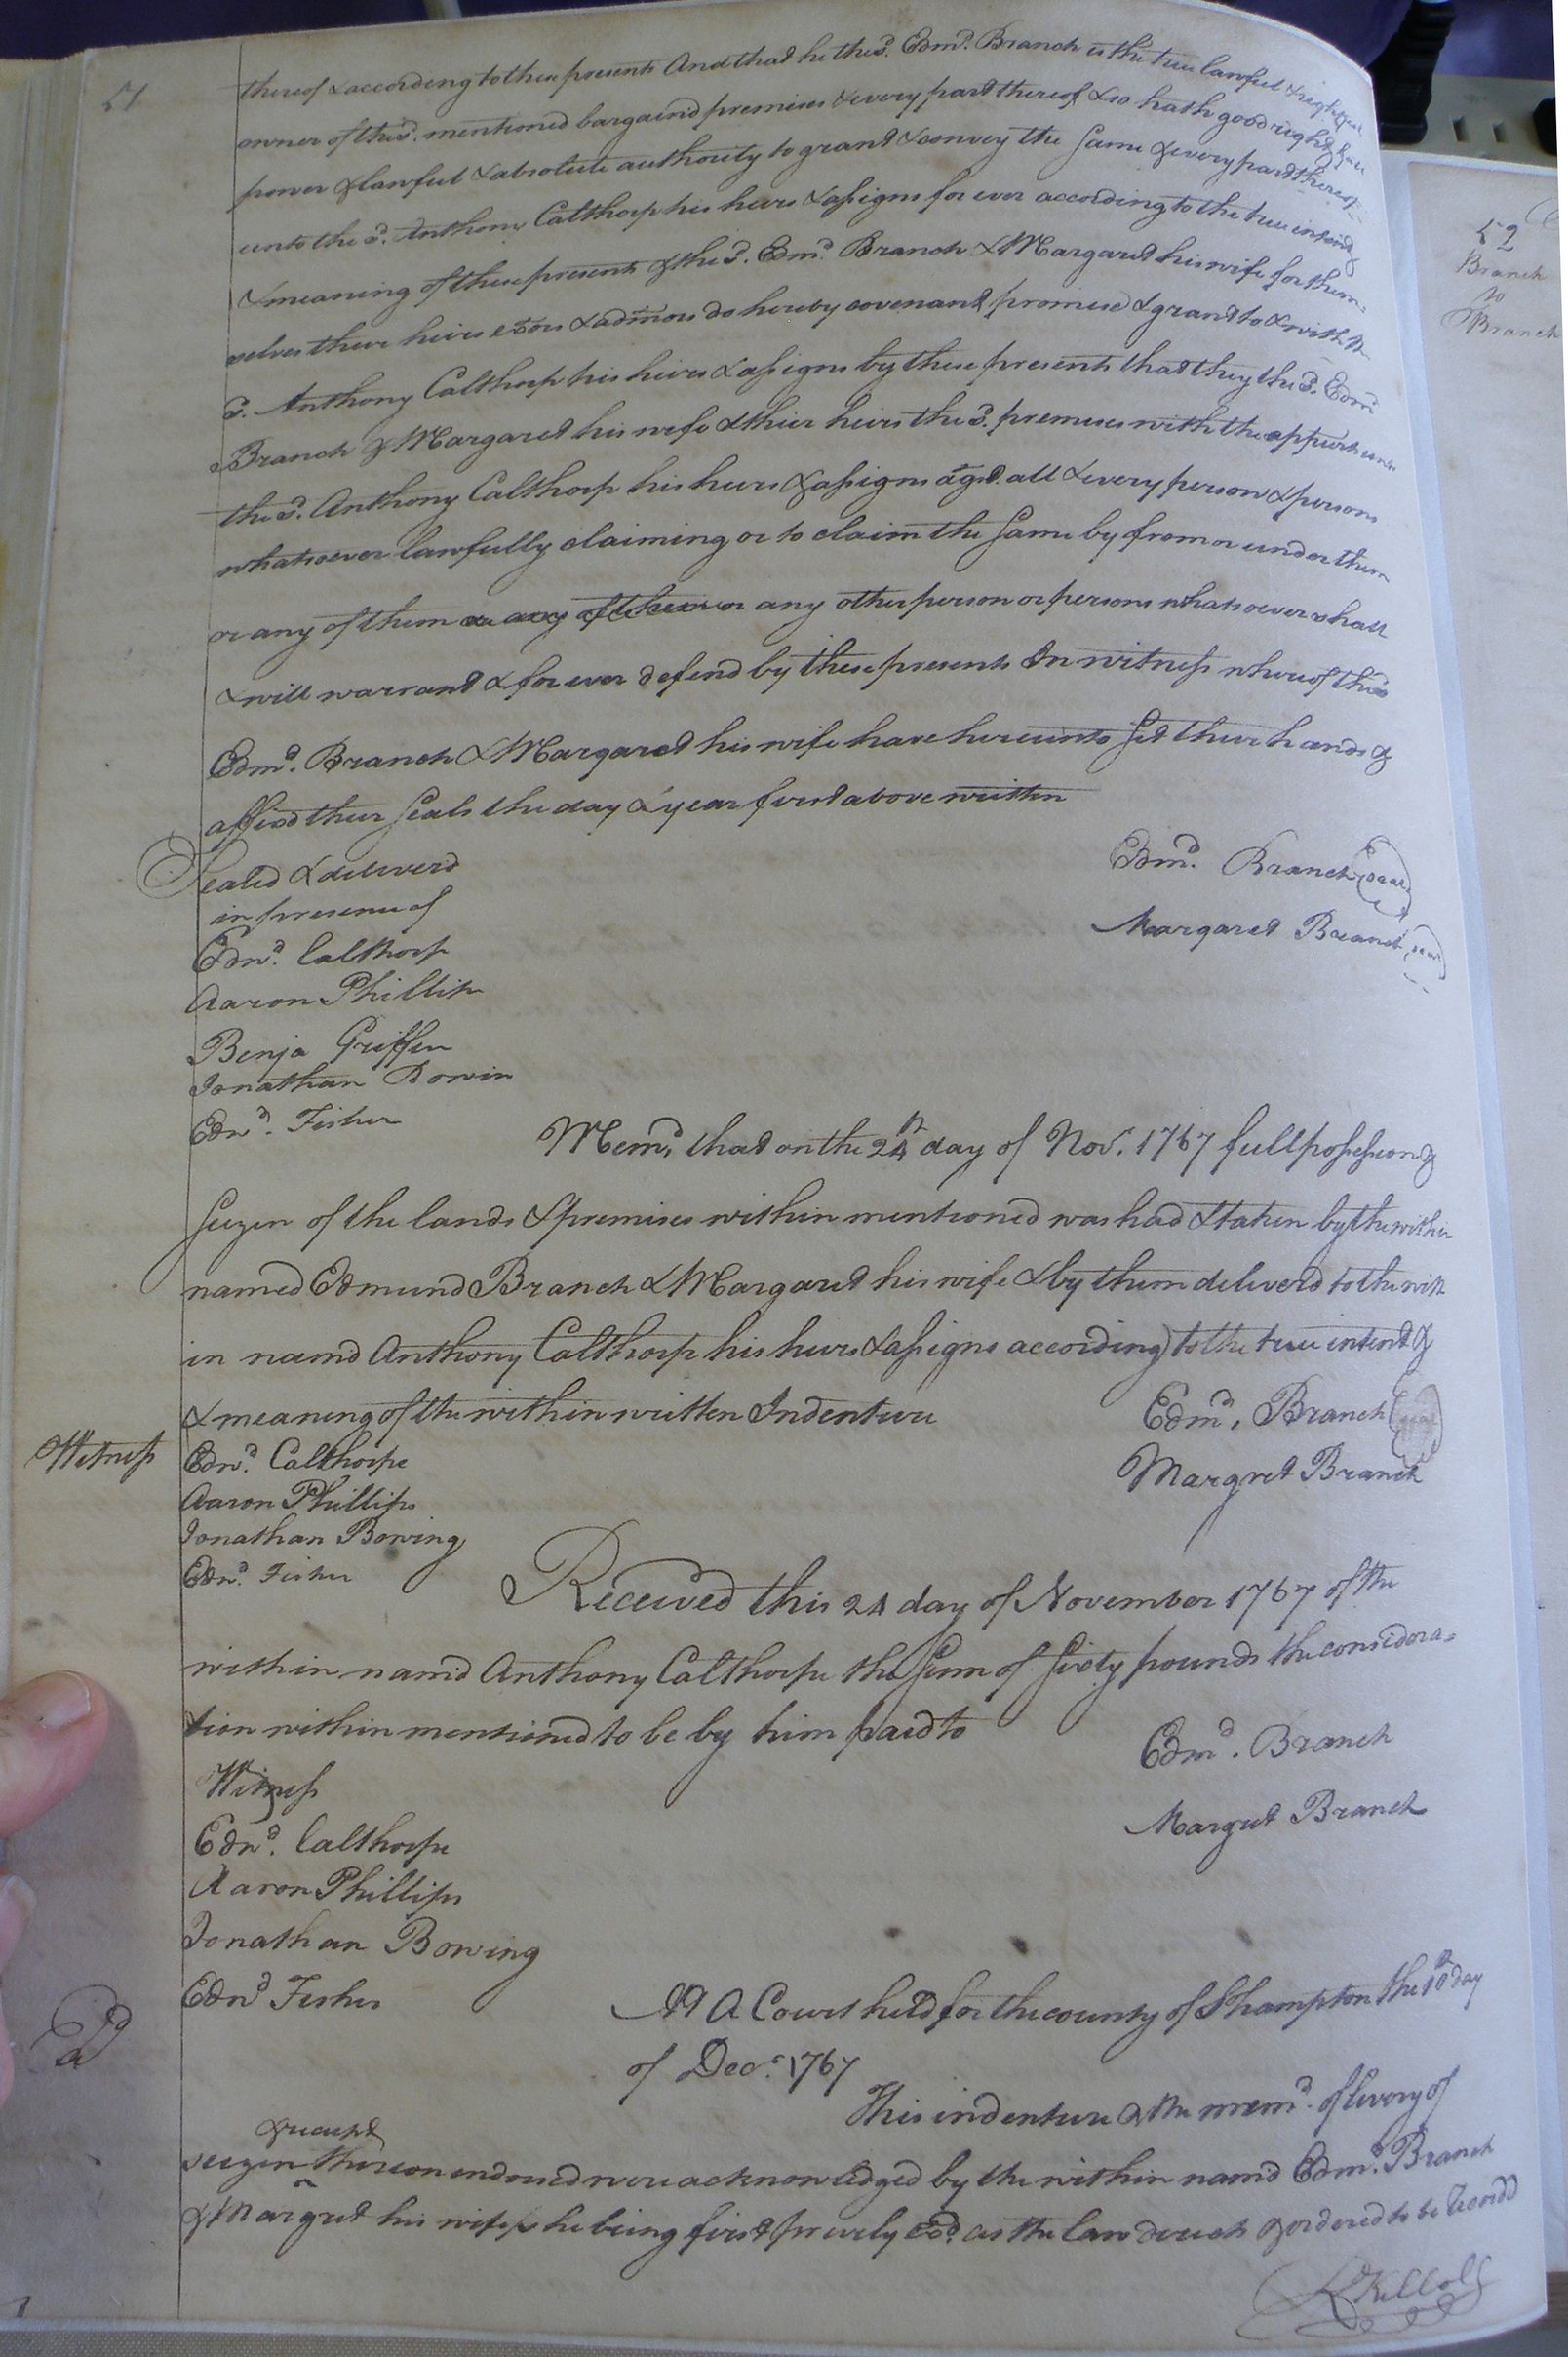 51
thereof & according to these presents And that he the sd. Edmd. Branch is the true lawful & rightful
owner of the sd. mentioned bargaind premises & every part thereof & so hath good right full
power & lawful & absolute authority to grant & convey the same & every part thereof
unto the sd. Anthony Calthorp his heirs & assigns for ever according to the true intent
& meaning of these presents & the sd. Edmd. Branch & Margaret his wife for them-
selves their heirs exors & admors do hereby covenant promise & grant to & with the
sd. Anthony Calthorp his heirs & assigns by these presents that they the sd. Edmd
Branch & Margaret his wife & thier heirs the sd. premises with the appurtenants
the sd. Anthony Calthorp his heirs & assigns agst. all & every person & persons
whatsoever lawfully claiming or to claim the same by from or under them
or any of them or any of them or any other person or persons whatsoever shall
& will warrant & for ever defend by these presents In witness whereof the sd
Edmd. Branch & Margaret his wife have hereunto set their hands &
affixd their seals the day & year first above written
Sealed & deliverd
in presence of
Edmd. Branch (seal)
Margaret Branch (seal)
Edwd. Calthorp
Aaron Phillips
Benja Griffen
Jonathan Bowin
Edwd. Fisher
Memd. that on the 24th day of Novr. 1767 full possession &
seizen of the lands & premises within mentioned was had & taken by the within
named Edmund Branch & Margaret his wife & by them deliverd to the with
in namd Anthony Calthorp his heirs & assigns according to the true intent &
& meaning of the within written Indenture
Edmd. Branch (seal)
Margret Branch
Witness
Edwd. Calthorpe
Aaron Phillips
Jonathan Bowing
Edwd. Fisher
Received this 24 day of November 1767 of the
within namd Anthony Calthorpe the sum of sixty pounds the considera-
tion within mentioned to be by him paid to
Edmd. Branch
Margret Branch
Witness
Edwd. Calthorpe
Aaron Phillips
Jonathan Bowing
Edwd Fisher
At A Court held for the county of Shampton the 10th day
of Decr. 1767
This indenture & the memd. of livery of
& receipt
seizen thereon endorsed were acknowledged by the within namd Edmd. Branch
& Margret his wife she being first privily Exd. as the law directs & ordered to be recordd
52
Branch
to
Branch